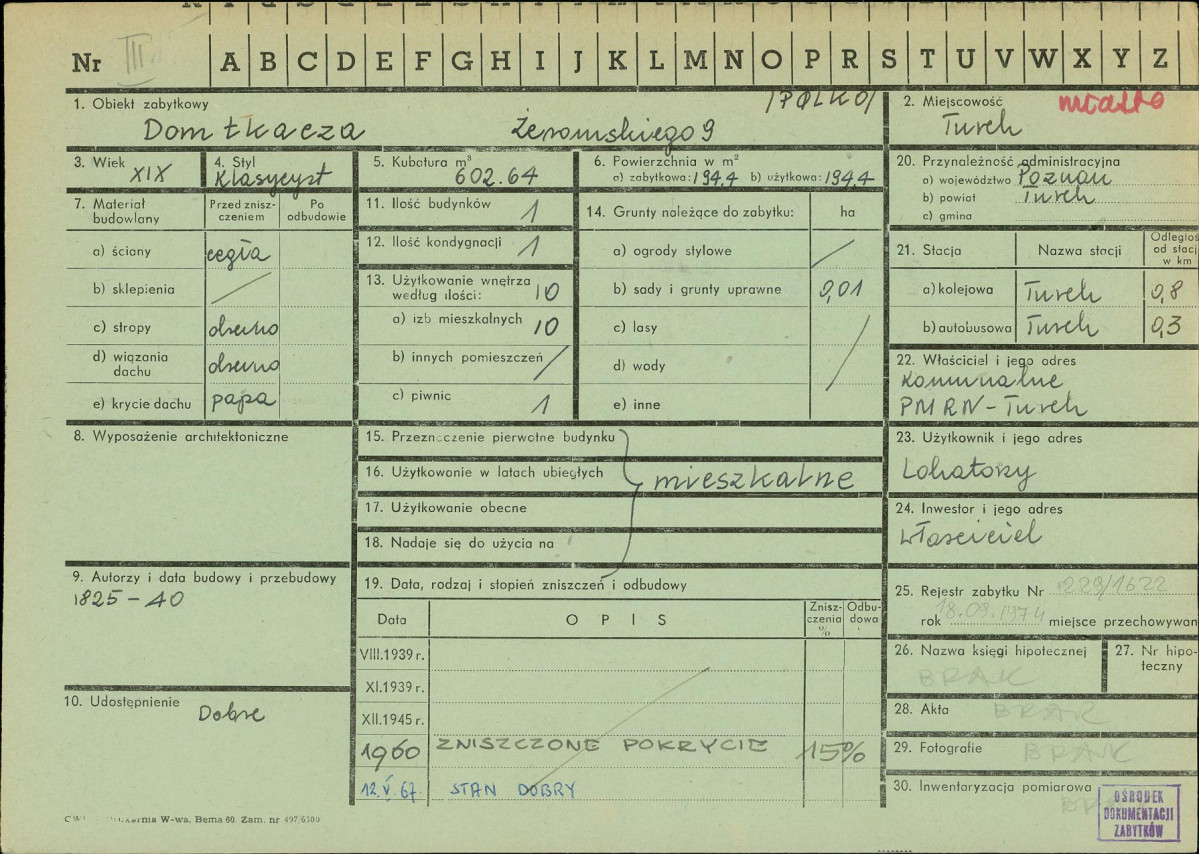 Nr III A B C D E F G H I J K L M N O P R S T U V W X Y Z
1. Obiekt zabytkowy /POLKO/
Dom tkacza Żeromskiego 9
2. Miejscowość miasto
Turek
3. Wiek XIX
4. Styl
Klasycyst
5. Kubatura m³
602.64
6. Powierzchnia w m²
a) zabytkowa: 194.4 b) użytkowa: 194.4
20. Przynależność administracyjna
a) województwo Poznań
b) powiat Turek
c) gmina
7. Materiał budowlany
Przed zniszczeniem
Po odbudowie
a) ściany cegła
b) sklepienia /
c) stropy drewno
d) wiązania dachu drewno
e) krycie dachu papa
11. Ilość budynków 1
12. Ilość kondygnacji 1
13. Użytkowanie wnętrza
według ilości: 10
a) izb mieszkalnych 10
b) innych pomieszczeń /
c) piwnic 1
14. Grunty należące do zabytku: ha
a) ogrody stylowe /
b) sady i grunty uprawne 0,01
c) lasy
d) wody /
e) inne
21. Stacja Nazwa stacji Odległoś
od stacj
w km
a) kolejowa Turek 0,8
b) autobusowa Turek 0,3
22. Właściciel i jego adres
Komunalne
PMRN - Turek
8. Wyposażenie architektoniczne
15. Przeznaczenie pierwotne budynku
16. Użytkowanie w latach ubiegłych mieszkalne
17. Użytkowanie obecne
18. Nadaje się do użycia na
23. Użytkownik i jego adres
Lokatorzy
24. Inwestor i jego adres
właściciel
9. Autorzy i data budowy i przebudowy
1825 - 40
19. Data, rodzaj i stopień zniszczeń i odbudowy
Data OPIS Zniszczenia % Odbudowa
VIII.1939 r.
XI.1939 r.
XII.1945 r.
1960 ZNISZCZONE POKRYCIE 15%
12.V.67. STAN DOBRY
25. Rejestr zabytku Nr 229/1622
rok 18.09.1974 miejsce przechowywan
26. Nazwa księgi hipotecznej
BRAK
27. Nr hipo-
teczny
10. Udostępnienie
Dobre
28. Akta BRAK
29. Fotografie BRAK
30. Inwentaryzacja pomiarowa
OŚRODEK
DOKUMENTACJI
ZABYTKÓW
W-wa, Bema 60. Zam. nr 497/6500